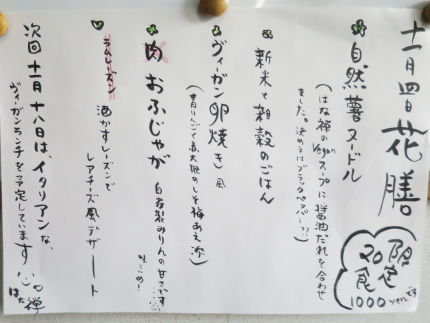 十一月四日 花膳
限定
20食
1000yenです
自然薯ヌードル
(はな禅のveganスープに醤油だれを合わせ
ました。決め手はブラックペッパー♡)
新米と雑穀のごはん
ヴィーガン卵焼き風
(青りんごと赤大根のしそ梅あえ添)
肉おふじゃが 自家製みりんの甘さです
味しみこめ!
ラムレーズン
酒かすレーズンで
レアチーズ風デザート
次回十一月十八日は、イタリアンな、
ヴィーガンランチを予定しています
はな禅